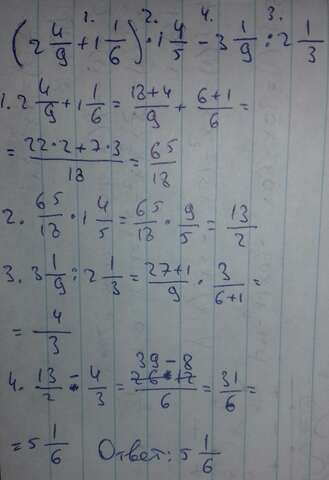 1. 2. 4. 3.
(2 4/9 + 1 1/6) · 1 4/5 - 3 1/9 : 2 1/3
1. 2 4/9 + 1 1/6 = 18+4/9 + 6+1/6 =
= 22·2+7·3/18 = 65/18
2. 65/18 · 1 4/5 = 65/18 · 9/5 = 13/2
3. 3 1/9 : 2 1/3 = 27+1/9 · 3/6+1 =
= 4/3
4. 13/2 - 4/3 = 39-8/6 = 31/6 =
= 5 1/6 Ответ: 5 1/6